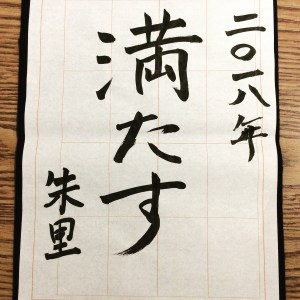 二〇一八年
満たす
朱里